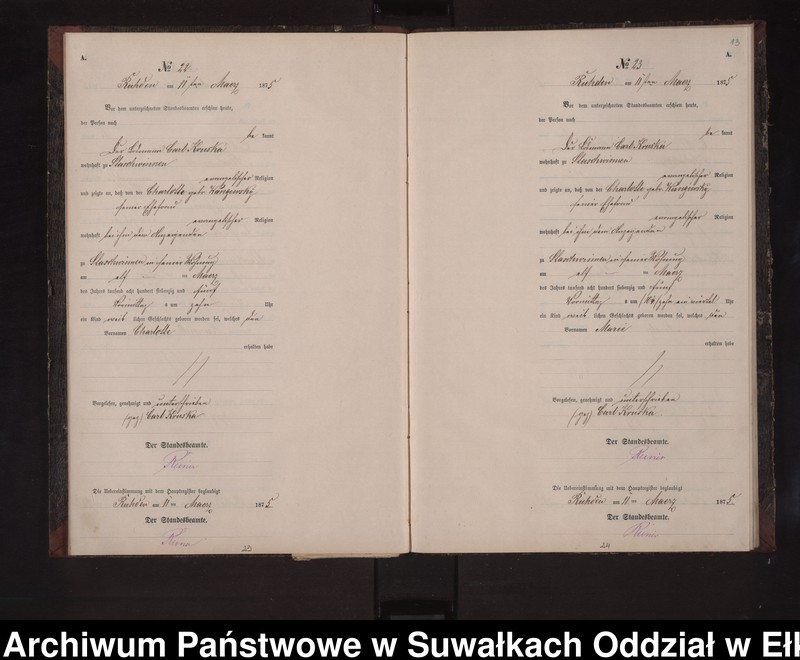 A.
№ 22
Ruhden am 11ten Maerz 1875
Vor dem unterzeichneten Standesbeamten erschien heute,
der Person nach
be kannt
Der Carl Konska
wohnhaft zu
evangelischer Religion
und zeigte an, daß von der Charlotte geb.
seiner Ehefrau
evangelischer Religion
wohnhaft bei ihm dem Anzeigenden
zu in seiner Wohnung
am elf ten Maerz
des Jahres tausend acht hundert siebenzig und fünf
Vormittag s um zehn Uhr
ein Kind weib lichen Geschlechts geboren worden sei, welches den
Vornamen Charlotte
erhalten habe
Vorgelesen, genehmigt und unterschrieben
(gez) Carl Konska
Der Standesbeamte.
Die Uebereinstimmung mit dem Hauptregister beglaubigt
Ruhden am 11ten Maerz 1875
Der Standesbeamte.
23
13
A.
№ 23
Ruhden am 11ten Maerz 1875
Vor dem unterzeichneten Standesbeamten erschien heute,
der Person nach
be kannt
Der Carl Konska
wohnhaft zu
evangelischer Religion
und zeigte an, daß von der Charlotte geb.
seiner Ehefrau
evangelischer Religion
wohnhaft bei ihm dem Anzeigenden
zu in seiner Wohnung
am elf ten Maerz
des Jahres tausend acht hundert siebenzig und fünf
Vormittag s um (10¼) zehn ein viertel Uhr
ein Kind weib lichen Geschlechts geboren worden sei, welches den
Vornamen Marie
erhalten habe
Vorgelesen, genehmigt und unterschrieben
(gez) Carl Konska
Der Standesbeamte.
Die Uebereinstimmung mit dem Hauptregister beglaubigt
Ruhden am 11ten Maerz 1875
Der Standesbeamte.
24
Archiwum Państwowe w Suwałkach Oddział w Eł